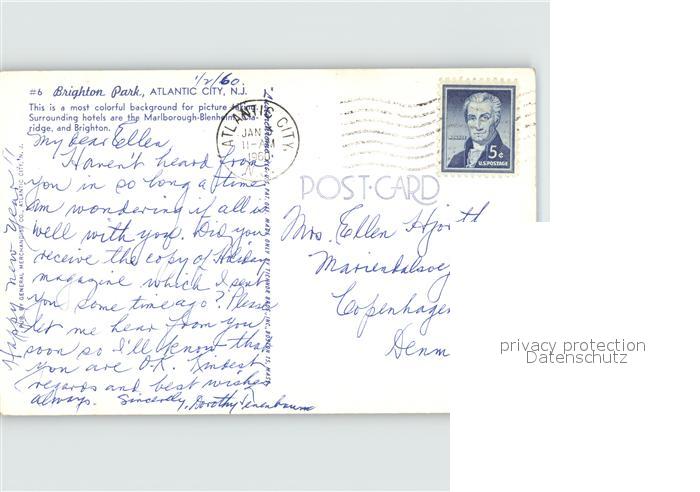 1/2/60.
#6 Brighton Park, ATLANTIC CITY, N.J.
This is a most colorful background for picture
Surrounding hotels are the Marlborough-Blenheim,
ridge, and Brighton.
My dear Ellen
Haven't heard from
you in so long a time
am wondering if all is
well with you. Did you
receive the copy of Holiday
magazine which I sent
you some time ago? Please
let me hear from you
soon so I'll know that
you are O.K. Kindest
regards and best wishes
always. Sincerely, Dorothy
Happy new year!!
PUB. BY GENERAL MERCHANDISE CO., ATLANTIC CITY, N. J.
ATLANTIC CITY,
JAN
11-AM
1960
N.J.
5¢
U.S.POSTAGE
POST-CARD
Mrs. Ellen
Copenhagen
Denm
privacy protection
Datenschutz